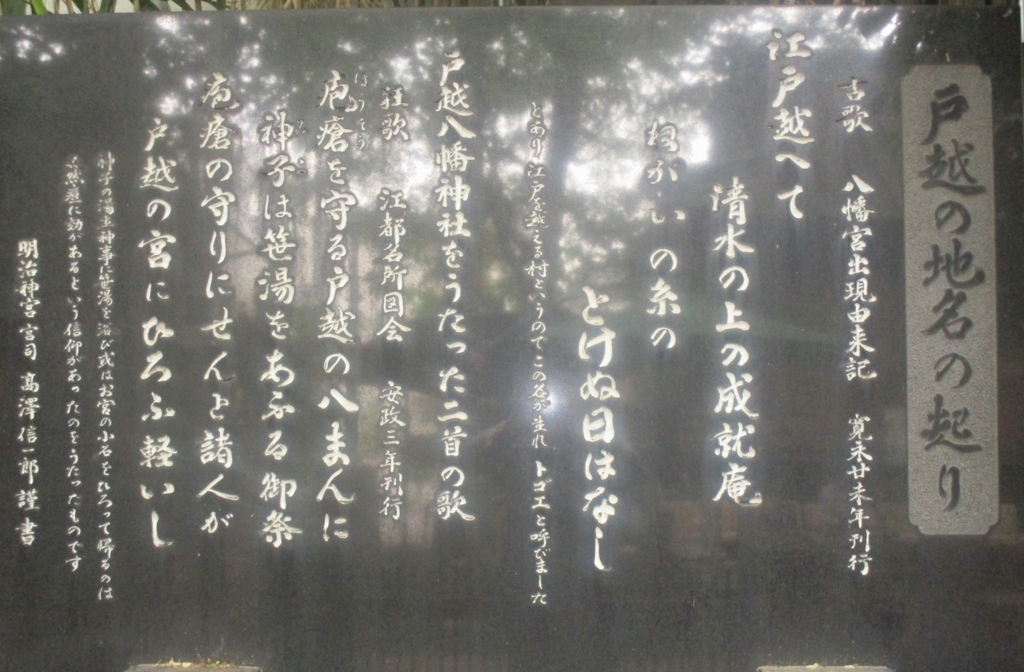 戸越の地名の起り
古歌 八幡宮出現由来記 寛永廿未年刊行
江戸越へて
清水の上の成就庵
ねがいの糸の
とけぬ日はなし
とあり江戸を越える村というのでこの名が生れ トゴエと呼びました
戸越八幡神社をうたった二首の歌
狂歌 江都名所図会 安政三年刊行
疱瘡を守る戸越の八まんに
神子は笹湯をあふる御祭
疱瘡の守りにせんと諸人が
戸越の宮にひろふ軽いし
神子の湯立神事に笹湯を浴び或はお宮の小石をひろって帰るのは
天然痘に効があるという信仰があったのをうたったものです
明治神宮宮司 高澤信一郎謹書